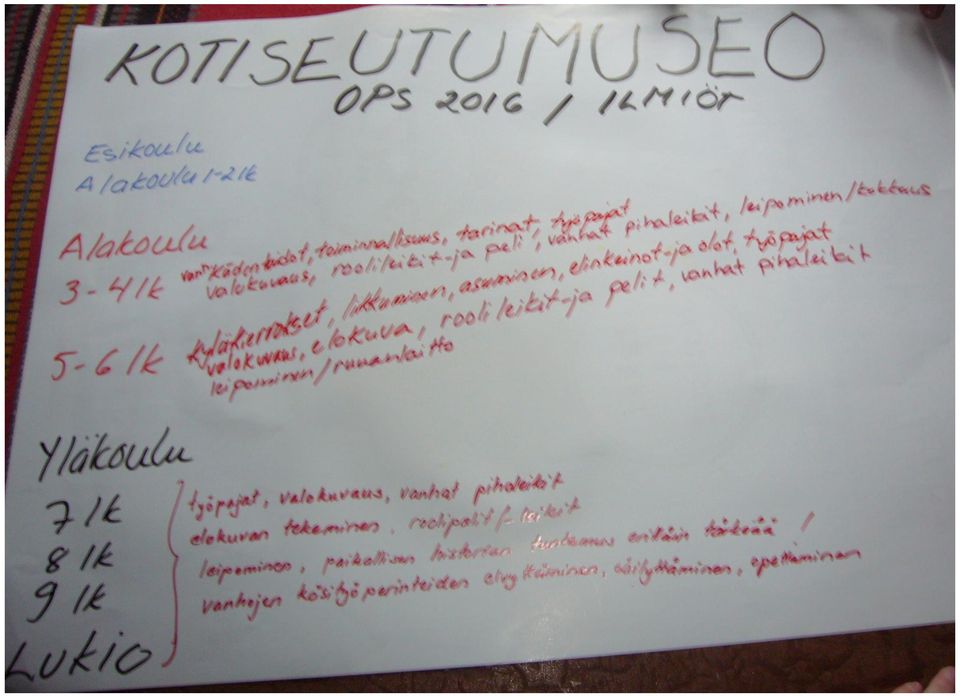 KOTISEUTUMUSEO
OPS 2016 / ILMIÖT
Esikoulu
Alakoulu 1-2lk
Alakoulu
3-4 lk Kädentaidot, toiminnallisuus, tarinat, työpajat
valokuvaus, roolileikit-ja peli, vanhat pihaleikit, leipominen/kokkaus
5-6 lk Kyläkierrokset, liikkuminen, asuminen, elinkeinot-ja olot, työpajat
valokuvaus, elokuva, roolileikit-ja pelit, vanhat pihaleikit
leipominen/ruuanlaitto
Yläkoulu
7 lk
8 lk
9 lk
Lukio
työpajat, valokuvaus, vanhat pihaleikit
elokuvan tekeminen, roolipelit/-leikit
leipominen, paikallisen historian tuntemus erittäin tärkeää!
vanhojen käsityöperinteiden elvyttäminen, säilyttäminen, opettaminen